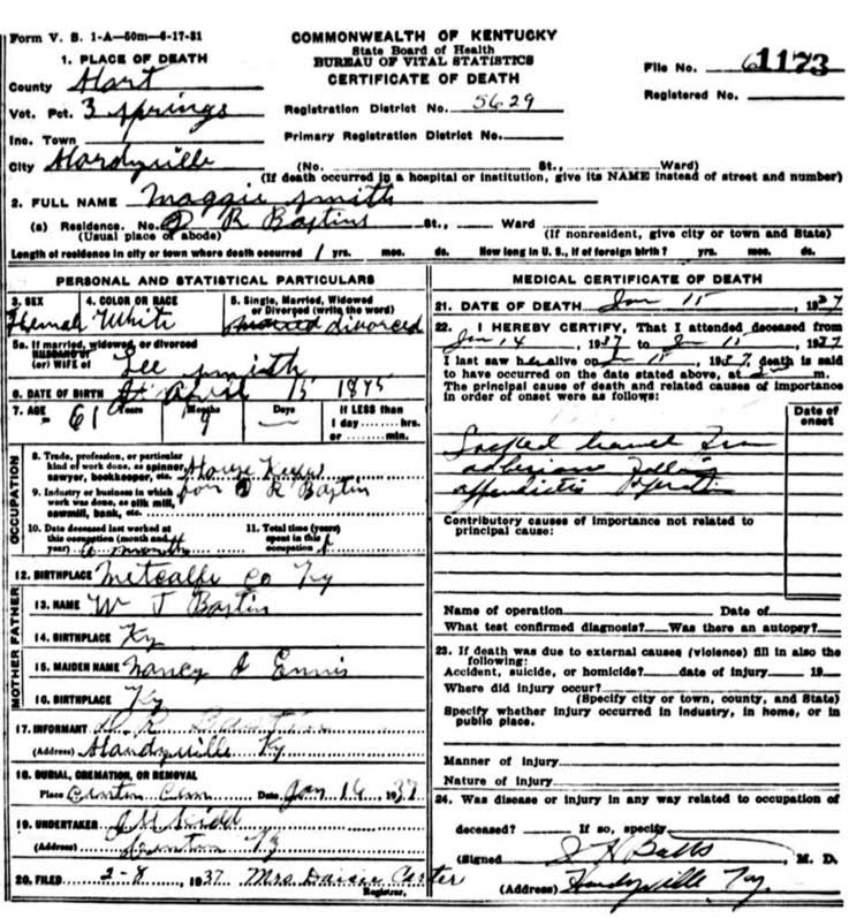 Form V. S. 1-A—50m—6-17-31
COMMONWEALTH OF KENTUCKY
State Board of Health
BUREAU OF VITAL STATISTICS
CERTIFICATE OF DEATH
File No. 1173
Registered No.
1. PLACE OF DEATH
County Hart
Vot. Pct. 3 Springs
Inc. Town
City Hardyville
Registration District No. 5629
Primary Registration District No.
(No. St., Ward)
(If death occurred in a hospital or institution, give its NAME instead of street and number)
2. FULL NAME Maggie Smith
(a) Residence. No. R Bastins St., Ward
(Usual place of abode) (If nonresident, give city or town and State)
Length of residence in city or town where death occurred 1 yrs. mos. ds. How long in U. S., if of foreign birth? yrs. mos. ds.
PERSONAL AND STATISTICAL PARTICULARS
3. SEX 4. COLOR OR RACE 5. Single, Married, Widowed
or Divorced (write the word)
Femal White divorced
5a. If married, widowed, or divorced
HUSBAND of
(or) WIFE of Lee Smith
6. DATE OF BIRTH April 15 1875
7. AGE 61 Years 9 Months Days If LESS than
1 day ........ hrs.
or ........ min.
OCCUPATION
8. Trade, profession, or particular
kind of work done, as spinner,
sawyer, bookkeeper, etc. House Keeper
9. Industry or business in which
work was done, as silk mill,
sawmill, bank, etc. for R Bastin
10. Date deceased last worked at
this occupation (month and
year) a month
11. Total time (years)
spent in this
occupation
12. BIRTHPLACE Metcalfe Co Ky
FATHER
13. NAME W J Bastin
14. BIRTHPLACE Ky
MOTHER
15. MAIDEN NAME Nancy Ennis
16. BIRTHPLACE Ky
17. INFORMANT R Bastin
(Address) Hardyville Ky
18. BURIAL, CREMATION, OR REMOVAL
Place Center Cem Date Jan 16 1937
19. UNDERTAKER
(Address) Center Ky
20. FILED 2-8, 1937 Mrs Daisie Carter
Registrar.
MEDICAL CERTIFICATE OF DEATH
21. DATE OF DEATH Jan 15, 1937
22. I HEREBY CERTIFY, That I attended deceased from
Jan 14, 1937 to Jan 15, 1937
I last saw her alive on Jan 15, 1937, death is said
to have occurred on the date stated above, at m.
The principal cause of death and related causes of importance
in order of onset were as follows:
Date of
onset
Locked bowel from
adhesions following
appendicitis operation
Contributory causes of importance not related to
principal cause:
Name of operation Date of
What test confirmed diagnosis? Was there an autopsy?
23. If death was due to external causes (violence) fill in also the
following:
Accident, suicide, or homicide? date of injury 19
Where did injury occur?
(Specify city or town, county, and State)
Specify whether injury occurred in industry, in home, or in
public place.
Manner of injury
Nature of injury
24. Was disease or injury in any way related to occupation of
deceased? If so, specify
(Signed Batts, M. D.
(Address) Hardyville Ky.